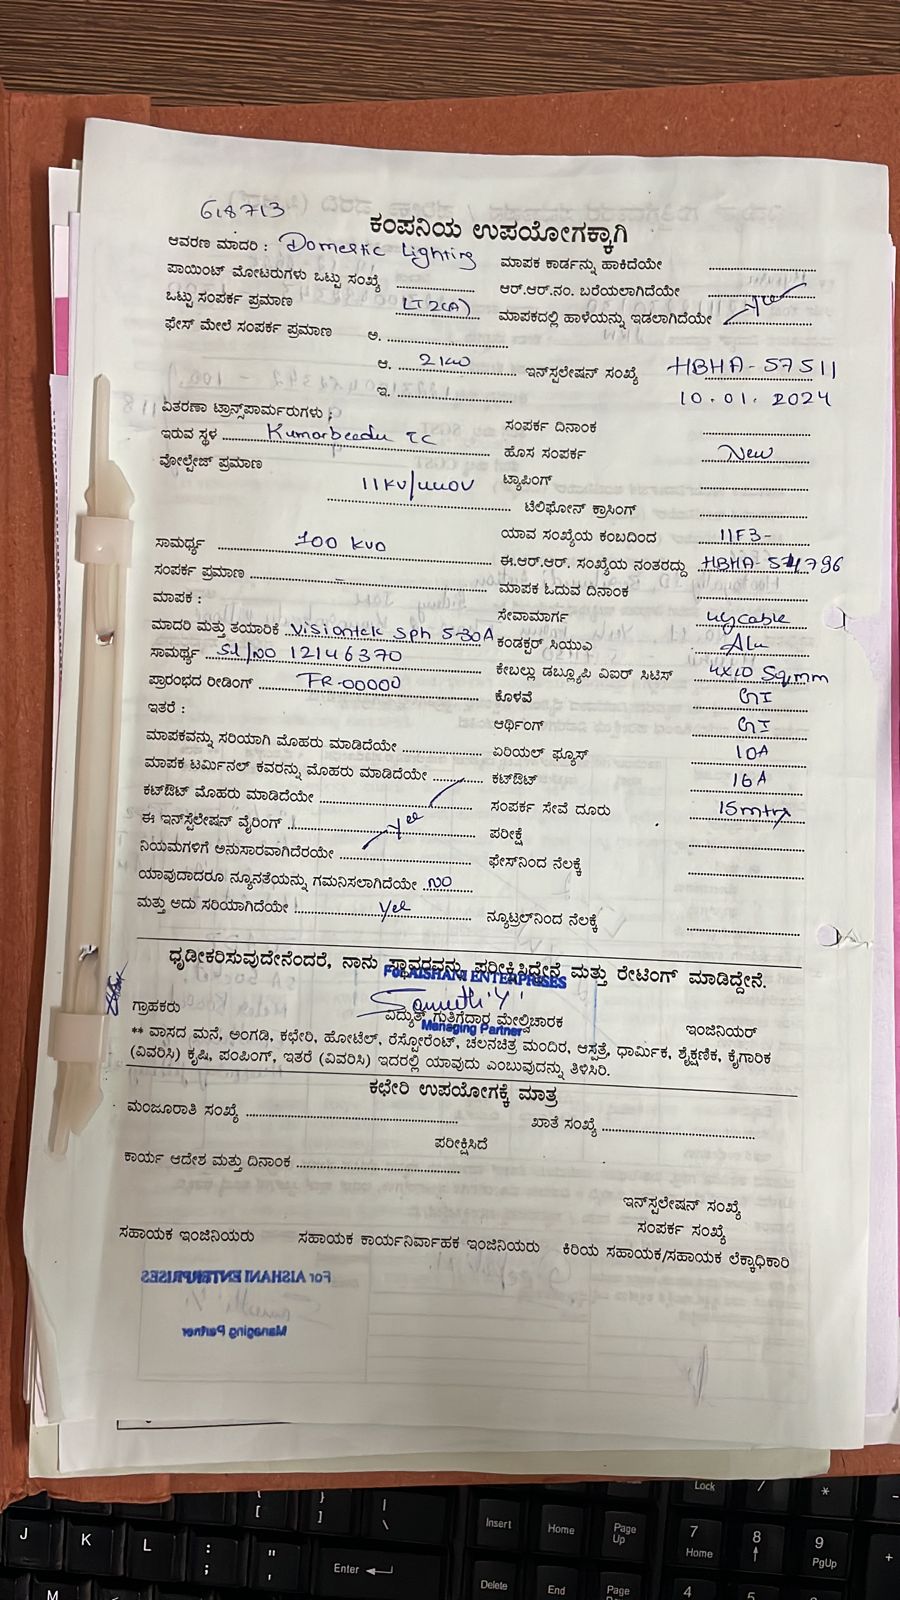 618713
ಕಂಪನಿಯ ಉಪಯೋಗಕ್ಕಾಗಿ
ಆವರಣ ಮಾದರಿ : Domestic Lighting
ಮಾಪಕ ಕಾರ್ಡನ್ನು ಹಾಕಿದೆಯೇ
ಪಾಯಿಂಟ್ ಮೋಟರುಗಳು ಒಟ್ಟು ಸಂಖ್ಯೆ
ಆರ್.ಆರ್.ನಂ. ಬರೆಯಲಾಗಿದೆಯೇ
ಒಟ್ಟು ಸಂಪರ್ಕ ಪ್ರಮಾಣ LT2(A)
ಮಾಪಕದಲ್ಲಿ ಹಾಳೆಯನ್ನು ಇಡಲಾಗಿದೆಯೇ yes
ಫೇಸ್ ಮೇಲೆ ಸಂಪರ್ಕ ಪ್ರಮಾಣ ಅ.
ಆ. 2KW ಇನ್‌ಸ್ಪಲೇಷನ್ ಸಂಖ್ಯೆ HBHA-57511
ಇ. 10.01.2024
ವಿತರಣಾ ಟ್ರಾನ್ಸ್‌ಪಾರ್ಮರುಗಳು ;
ಸಂಪರ್ಕ ದಿನಾಂಕ
ಇರುವ ಸ್ಥಳ Kumarbeedu TC
ಹೊಸ ಸಂಪರ್ಕ New
ವೋಲ್ಟೇಜ್ ಪ್ರಮಾಣ 11KV/440V
ಟ್ಯಾಪಿಂಗ್
ಟೆಲಿಫೋನ್ ಕ್ರಾಸಿಂಗ್
ಯಾವ ಸಂಖ್ಯೆಯ ಕಂಬದಿಂದ 11F3-
ಸಾಮರ್ಥ್ಯ 100 KVA
ಈ.ಆರ್.ಆರ್. ಸಂಖ್ಯೆಯ ನಂತರದ್ದು HBHA-54796
ಸಂಪರ್ಕ ಪ್ರಮಾಣ -
ಮಾಪಕ ಓದುವ ದಿನಾಂಕ
ಮಾಪಕ :
ಸೇವಾಮಾರ್ಗ ug cable
ಮಾದರಿ ಮತ್ತು ತಯಾರಿಕೆ Visiontek Sph 5-30A
ಕಂಡಕ್ಟರ್ ಸಿಯುವಿ Alu
ಸಾಮರ್ಥ್ಯ Sl/NO 12146370
ಕೇಬಲ್ಲು ಡಬ್ಲ್ಯೂಪಿ ವಿಐರ್ ಸಿಟಿಸ್ 4x10 Sq.mm
ಪ್ರಾರಂಭದ ರೀಡಿಂಗ್ FR-00000
ಕೊಳವೆ GI
ಇತರೆ :
ಆರ್ಥಿಂಗ್ GI
ಮಾಪಕವನ್ನು ಸರಿಯಾಗಿ ಮೊಹರು ಮಾಡಿದೆಯೇ
ಏರಿಯಲ್ ಫ್ಯೂಸ್ 10A
ಮಾಪಕ ಟರ್ಮಿನಲ್ ಕವರನ್ನು ಮೊಹರು ಮಾಡಿದೆಯೇ
ಕಟ್‌ಔಟ್ 16A
ಕಟ್‌ಔಟ್ ಮೊಹರು ಮಾಡಿದೆಯೇ
ಸಂಪರ್ಕ ಸೇವೆ ದೂರು 15mtrs
ಈ ಇನ್‌ಸ್ಟೆಲೇಷನ್ ವೈರಿಂಗ್ yes
ಪರೀಕ್ಷೆ
ನಿಯಮಗಳಿಗೆ ಅನುಸಾರವಾಗಿದೆರಯೇ
ಫೇಸ್‌ನಿಂದ ನೆಲಕ್ಕೆ
ಯಾವುದಾದರೂ ನ್ಯೂನತೆಯನ್ನು ಗಮನಿಸಲಾಗಿದೆಯೇ NO
ಮತ್ತು ಅದು ಸರಿಯಾಗಿದೆಯೇ ! yes
ನ್ಯೂಟ್ರಲ್‌ನಿಂದ ನೆಲಕ್ಕೆ
ಧೃಡೀಕರಿಸುವುದೇನೆಂದರೆ, ನಾನು ಸ್ಥಾವರವನ್ನು ಪರೀಕ್ಷಿಸಿದ್ದೇನೆ ಮತ್ತು ರೇಟಿಂಗ್ ಮಾಡಿದ್ದೇನೆ.
For AISHANI ENTERPRISES
ಗ್ರಾಹಕರು
ವಿದ್ಯುತ್ ಗುತ್ತಿಗೆದಾರ ಮೇಲ್ವಿಚಾರಕ
ಇಂಜಿನಿಯರ್
Managing Partner
** ವಾಸದ ಮನೆ, ಅಂಗಡಿ, ಕಛೇರಿ, ಹೋಟೆಲ್, ರೆಸ್ಟೋರೆಂಟ್, ಚಲನಚಿತ್ರ ಮಂದಿರ, ಆಸ್ಪತ್ರೆ, ಧಾರ್ಮಿಕ, ಶೈಕ್ಷಣಿಕ, ಕೈಗಾರಿಕ
(ವಿವರಿಸಿ) ಕೃಷಿ, ಪಂಪಿಂಗ್, ಇತರೆ (ವಿವರಿಸಿ) ಇದರಲ್ಲಿ ಯಾವುದು ಎಂಬುವುದನ್ನು ತಿಳಿಸಿರಿ.
ಕಛೇರಿ ಉಪಯೋಗಕ್ಕೆ ಮಾತ್ರ
ಮಂಜೂರಾತಿ ಸಂಖ್ಯೆ
ಖಾತೆ ಸಂಖ್ಯೆ
ಪರೀಕ್ಷಿಸಿದೆ
ಕಾರ್ಯ ಆದೇಶ ಮತ್ತು ದಿನಾಂಕ
ಇನ್‌ಸ್ಪಲೇಷನ್ ಸಂಖ್ಯೆ
ಸಂಪರ್ಕ ಸಂಖ್ಯೆ
ಸಹಾಯಕ ಇಂಜಿನಿಯರು ಸಹಾಯಕ ಕಾರ್ಯನಿರ್ವಾಹಕ ಇಂಜಿನಿಯರು ಕಿರಿಯ ಸಹಾಯಕ/ಸಹಾಯಕ ಲೆಕ್ಕಾಧಿಕಾರಿ
For AISHANI ENTERPRISES
Managing Partner